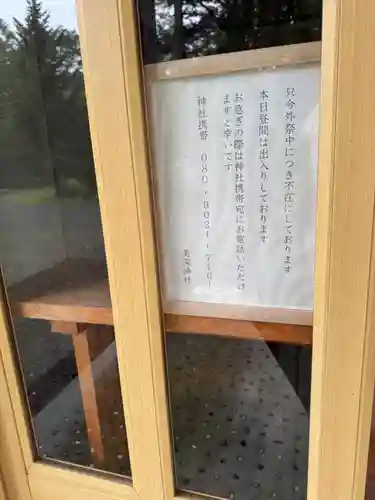 只今外祭中につき不在にしております
本日昼間は出入りしております
お急ぎの際は神社携帯宛にお電話いただけ
ますと幸いです
神社携帯 080-9024-7161
美深神社